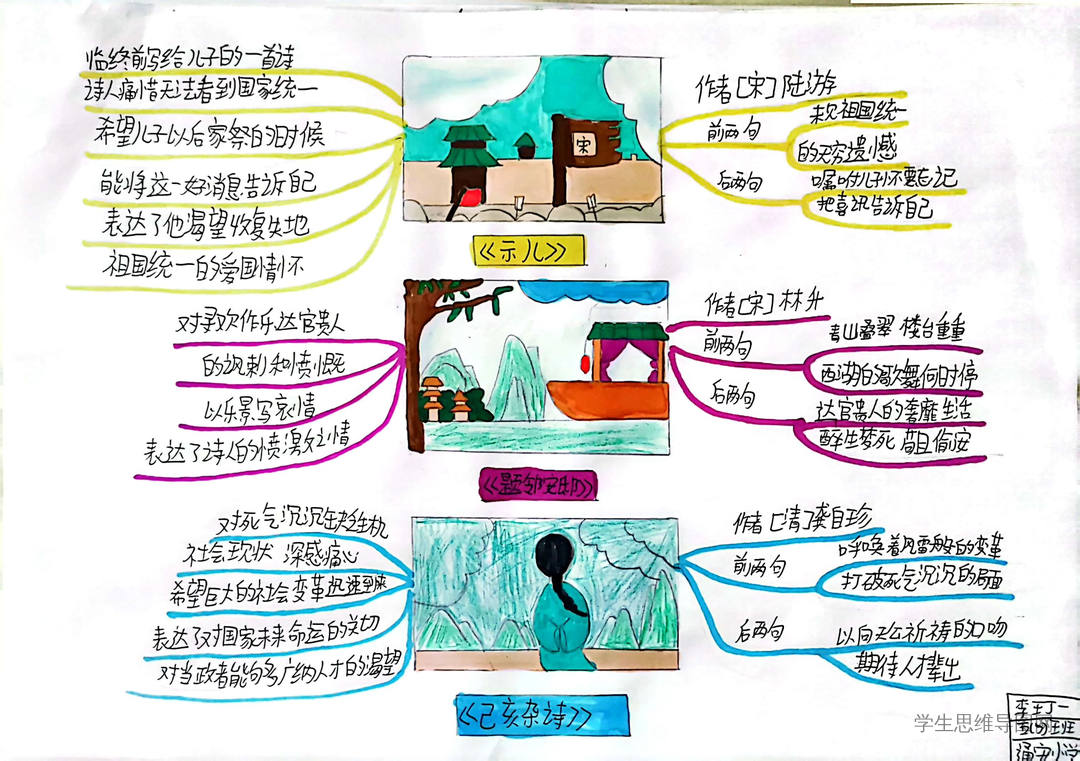 临终前写给儿子的一首诗
诗人痛惜无法看到国家统一
希望儿子以后家祭的时候
能将这一好消息告诉自己
表达了他渴望收复失地
祖国统一的爱国情怀
宋
作者[宋]陆游
前两句
未见祖国统一
的无穷遗憾
后两句
嘱咐儿子不要忘记
把喜讯告诉自己
《示儿》
对寻欢作乐达官贵人
的讽刺和愤慨
以乐景写哀情
表达了诗人的愤激之情
作者[宋]林升
前两句
青山叠翠 楼台重重
西湖的歌舞何时停
后两句
达官贵人的奢靡生活
醉生梦死 苟且偷安
《题临安邸》
对死气沉沉缺乏生机
社会现状 深感痛心
希望巨大的社会变革迅速到来
表达了对国家未来命运的关切
对当政者能向多广纳人才的渴望
作者[清]龚自珍
前两句
呼唤着风雷般的变革
打破死气沉沉的局面
后两句
以向天公祈祷的口吻
期待人才辈出
《己亥杂诗》
学生思维导图网